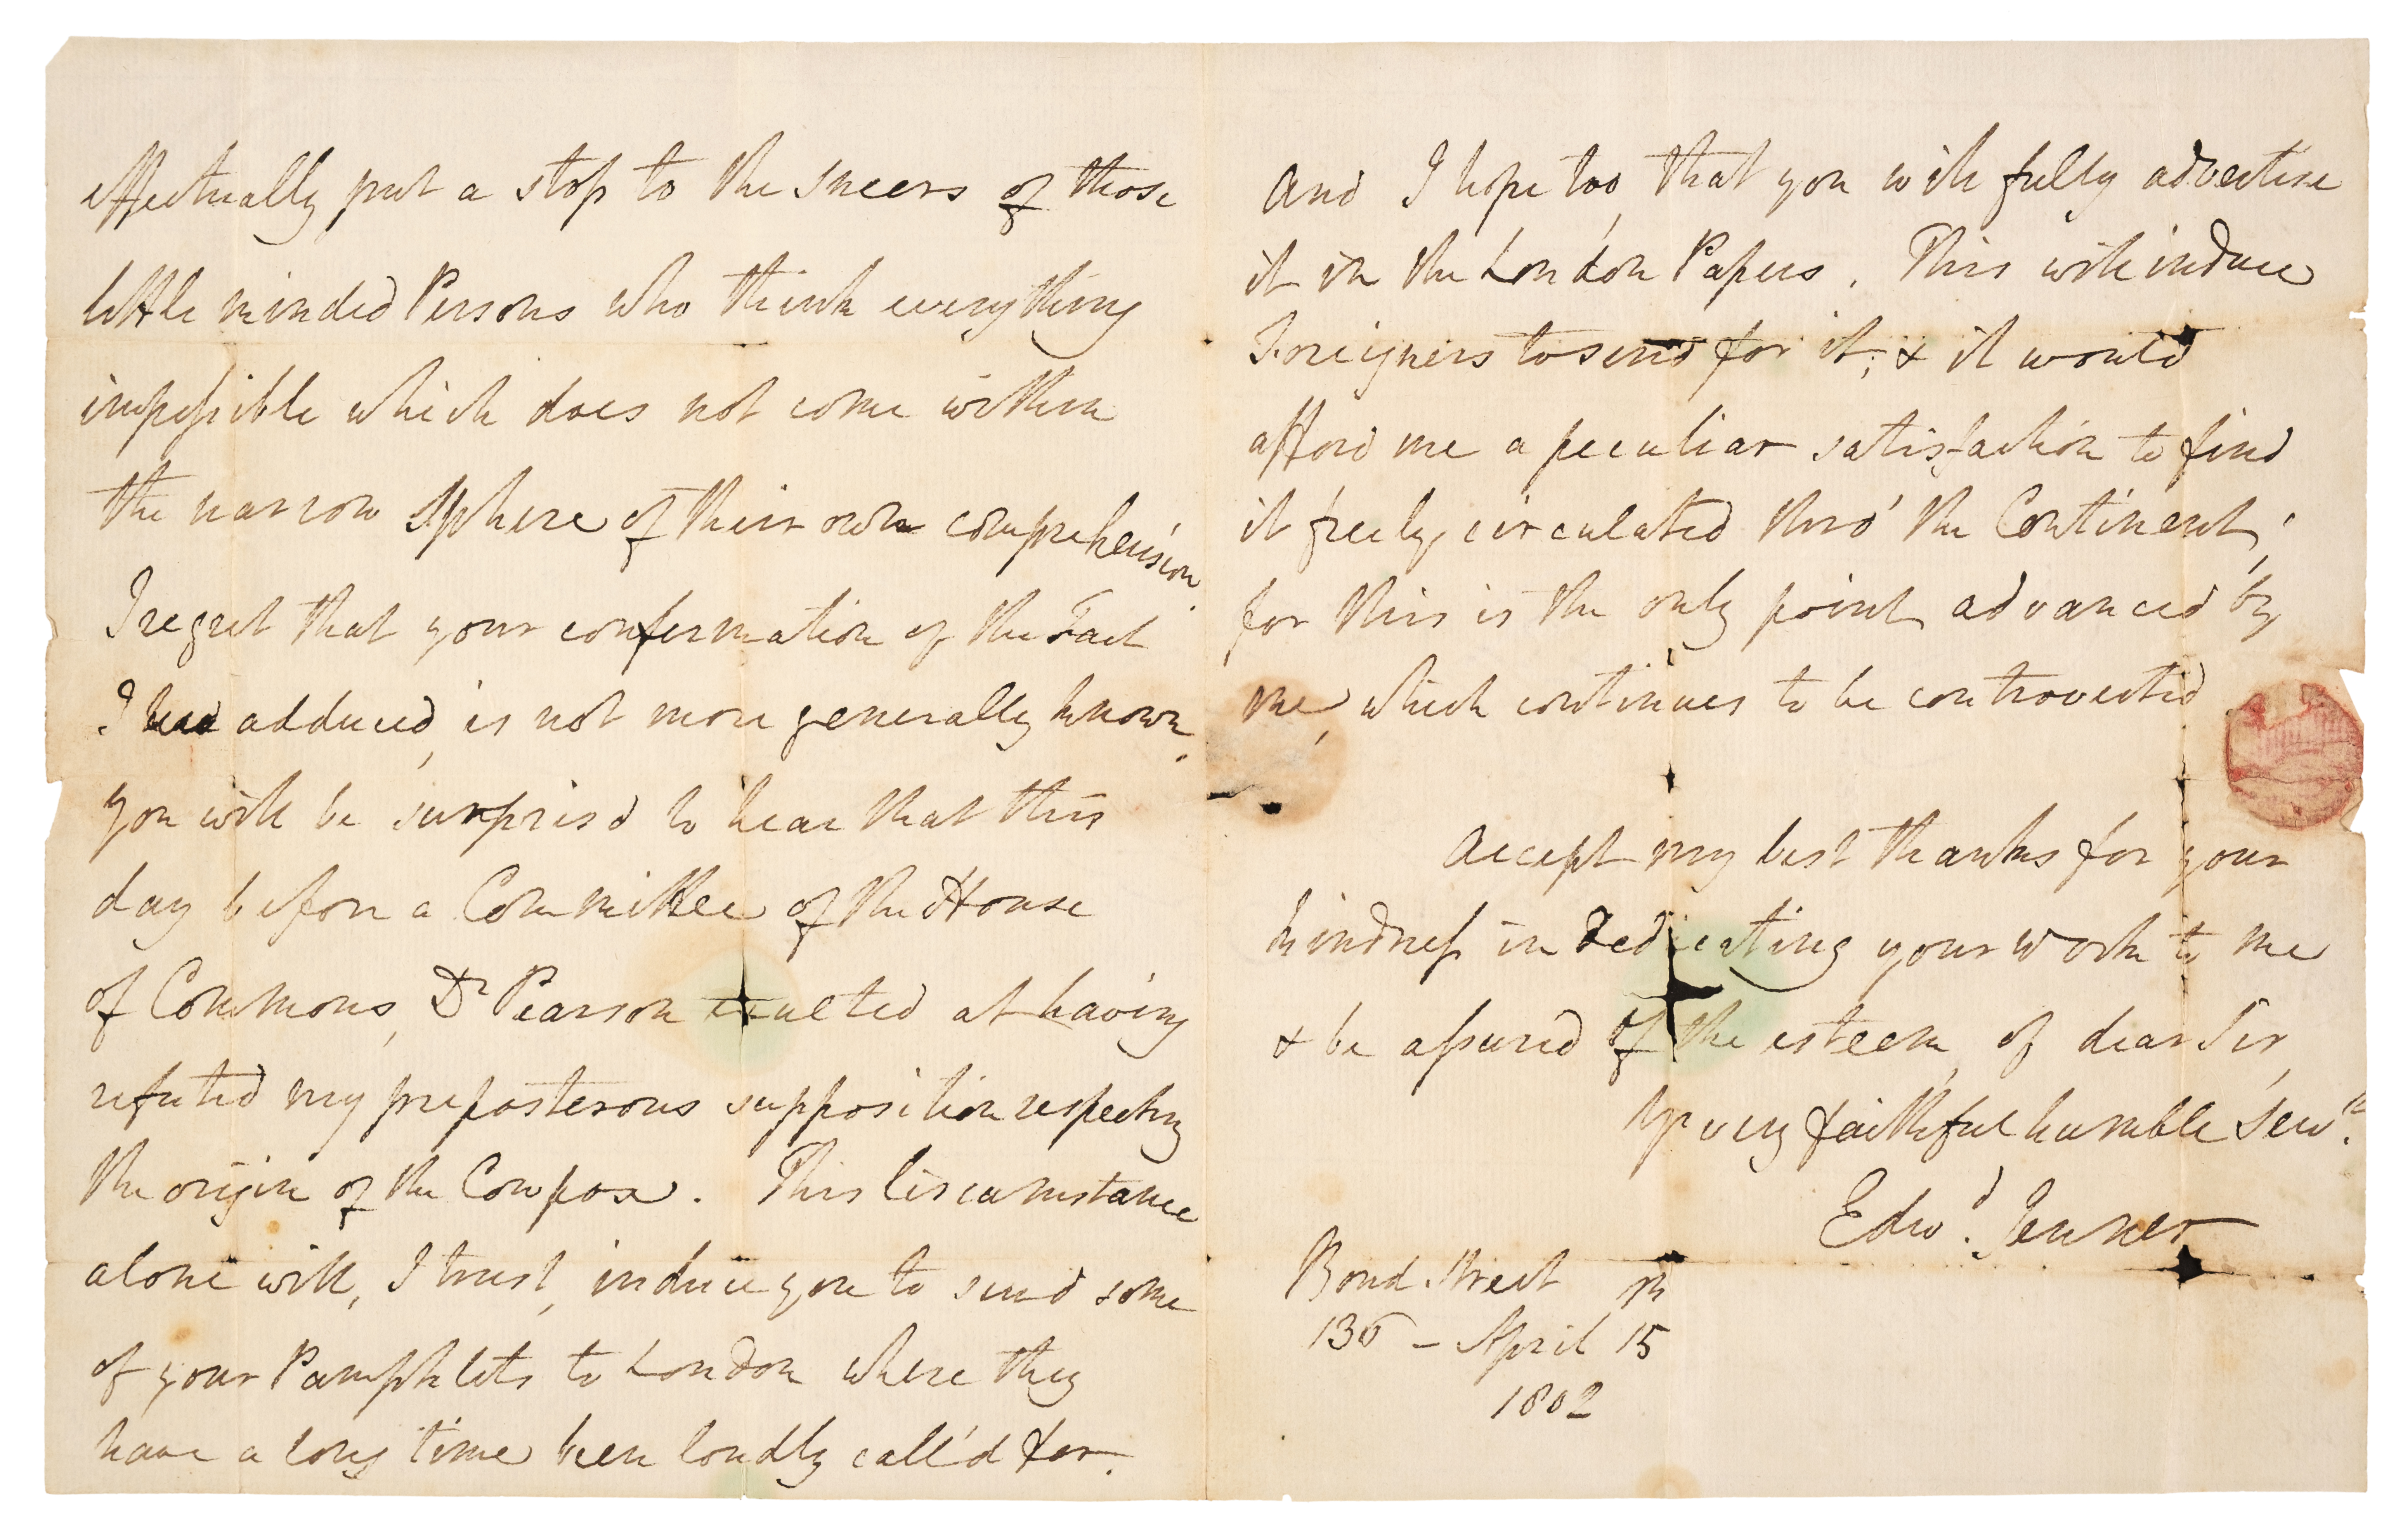 effectually put a stop to the sneers of those
little minded Persons who think everything
impossible which does not come within
the narrow Sphere of their own comprehension.
I regret that your confirmation of the Fact
I had adduced, is not more generally known.
you will be surpris'd to hear that this
day before a Committee of the House
of Commons, Dr Pearson exulted at having
refuted my preposterous supposition respecting
the origin of the Cowpox. This Circumstance
alone will, I trust, induce you to send some
of your Pamphlets to London where they
have a long time been loudly call'd for.
And I hope too, that you will fully advertise
it in the London Papers. This will induce
Foreigners to send for it; & it would
afford me a peculiar satisfaction to find
it freely circulated thro' the Continent;
for this is the only point advanced by
me, which continues to be controverted.
Accept my best thanks for your
kindness in Dedicating your work to me
& be assured of the esteem, of dear Sir,
Yr very faithful humble Servt.
Edwd. Jenner
Bond Street
136 - April 15th
1802